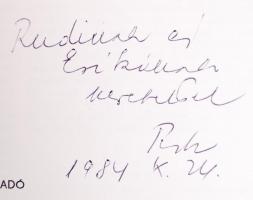 Rudinak és
Erikának
szeretettel
1984 X. 24.
ADÓ